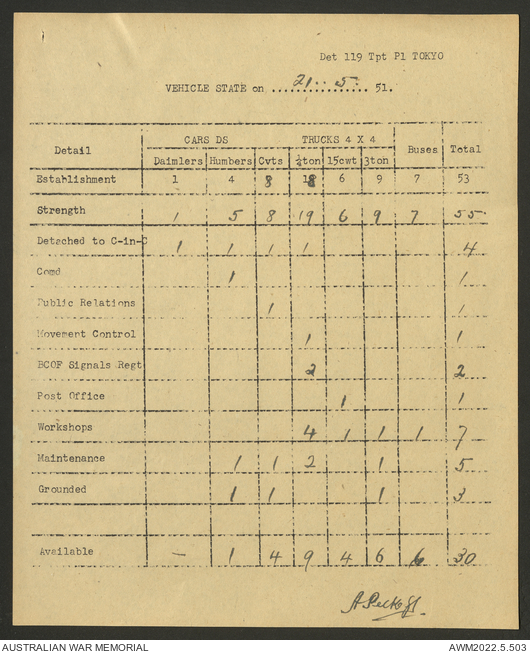 Det 119 Tpt Pl TOKYO
VEHICLE STATE on ...21...5........ 51.
CARS DS TRUCKS 4 X 4
Detail Buses Total
Daimlers Humbers Cvts ¼ton 15cwt 3ton
Establishment 1 4 8 18 6 9 7 53
Strength 1 5 8 19 6 9 7 55
Detached to C-in-C 1 1 1 1 4
Comd 1 1
Public Relations 1 1
Movement Control 1 1
BCOF Signals Regt 2 2
Post Office 1 1
Workshops 4 1 1 1 7
Maintenance 1 1 2 1 5
Grounded 1 1 1 3
Available — 1 4 9 4 6 6 30
AUSTRALIAN WAR MEMORIAL AWM2022.5.503